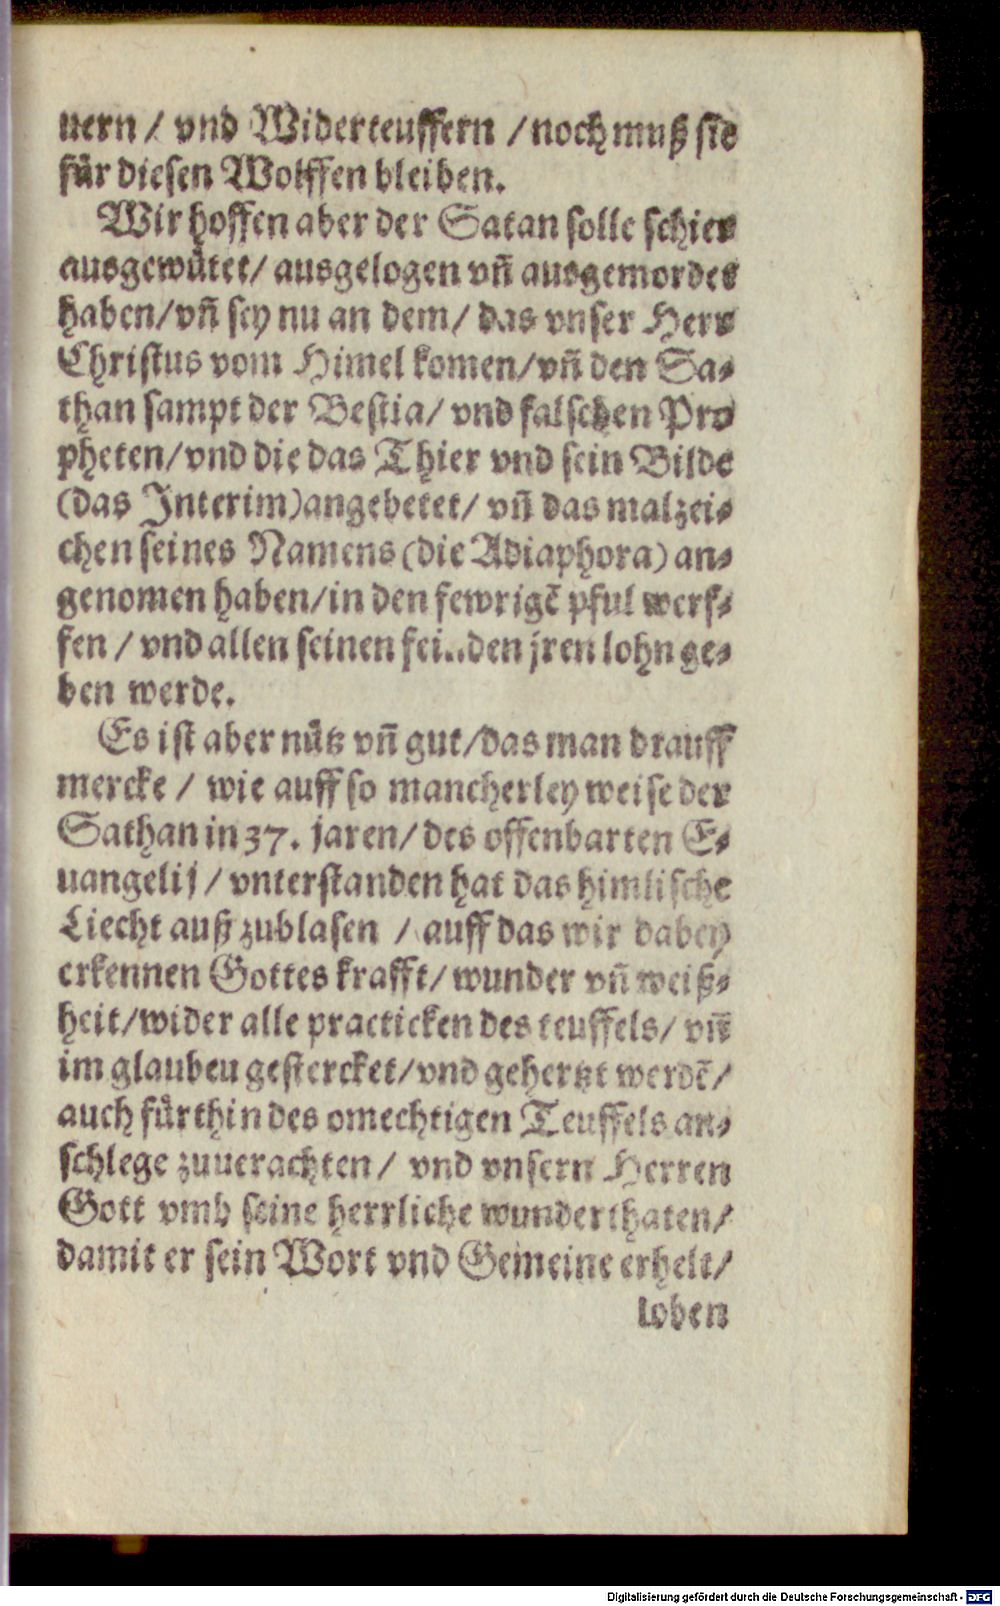 uern / vnd Widerteuffern / noch muß sie
für diesen Wolffen bleiben.
Wir hoffen aber der Satan solle schier
ausgewütet / ausgelogen vn̄ ausgemordet
haben / vn̄ sey nu an dem / das vnser Herr
Christus vom Himel komen / vn̄ den Sa⸗
than sampt der Bestia / vnd falschen Pro
pheten / vnd die das Thier vnd sein Bilde
(das Interim) angebetet / vn̄ das malzei⸗
chen seines Namens (die Adiaphora) an⸗
genomen haben / in den fewrigē pful werf⸗
fen / vnd allen seinen feinden jren lohn ge⸗
ben werde.
Es ist aber nütz vn̄ gut / das man drauff
mercke / wie auff so mancherley weise der
Sathan in 37. jaren / des offenbarten E⸗
uangelij / vnterstanden hat das himlische
Liecht auß zublasen / auff das wir dabey
erkennen Gottes krafft / wunder vn̄ weiß⸗
heit / wider alle practicken des teuffels / vn̄
im glauben gestercket / vnd gehertzt werdē /
auch fürthin des omechtigen Teuffels an⸗
schlege zuuerachten / vnd vnsern Herren
Gott vmb seine herrliche wunderthaten /
damit er sein Wort vnd Gemeine erhelt /
loben
Digitalisierung gefördert durch die Deutsche Forschungsgemeinschaft - DFG